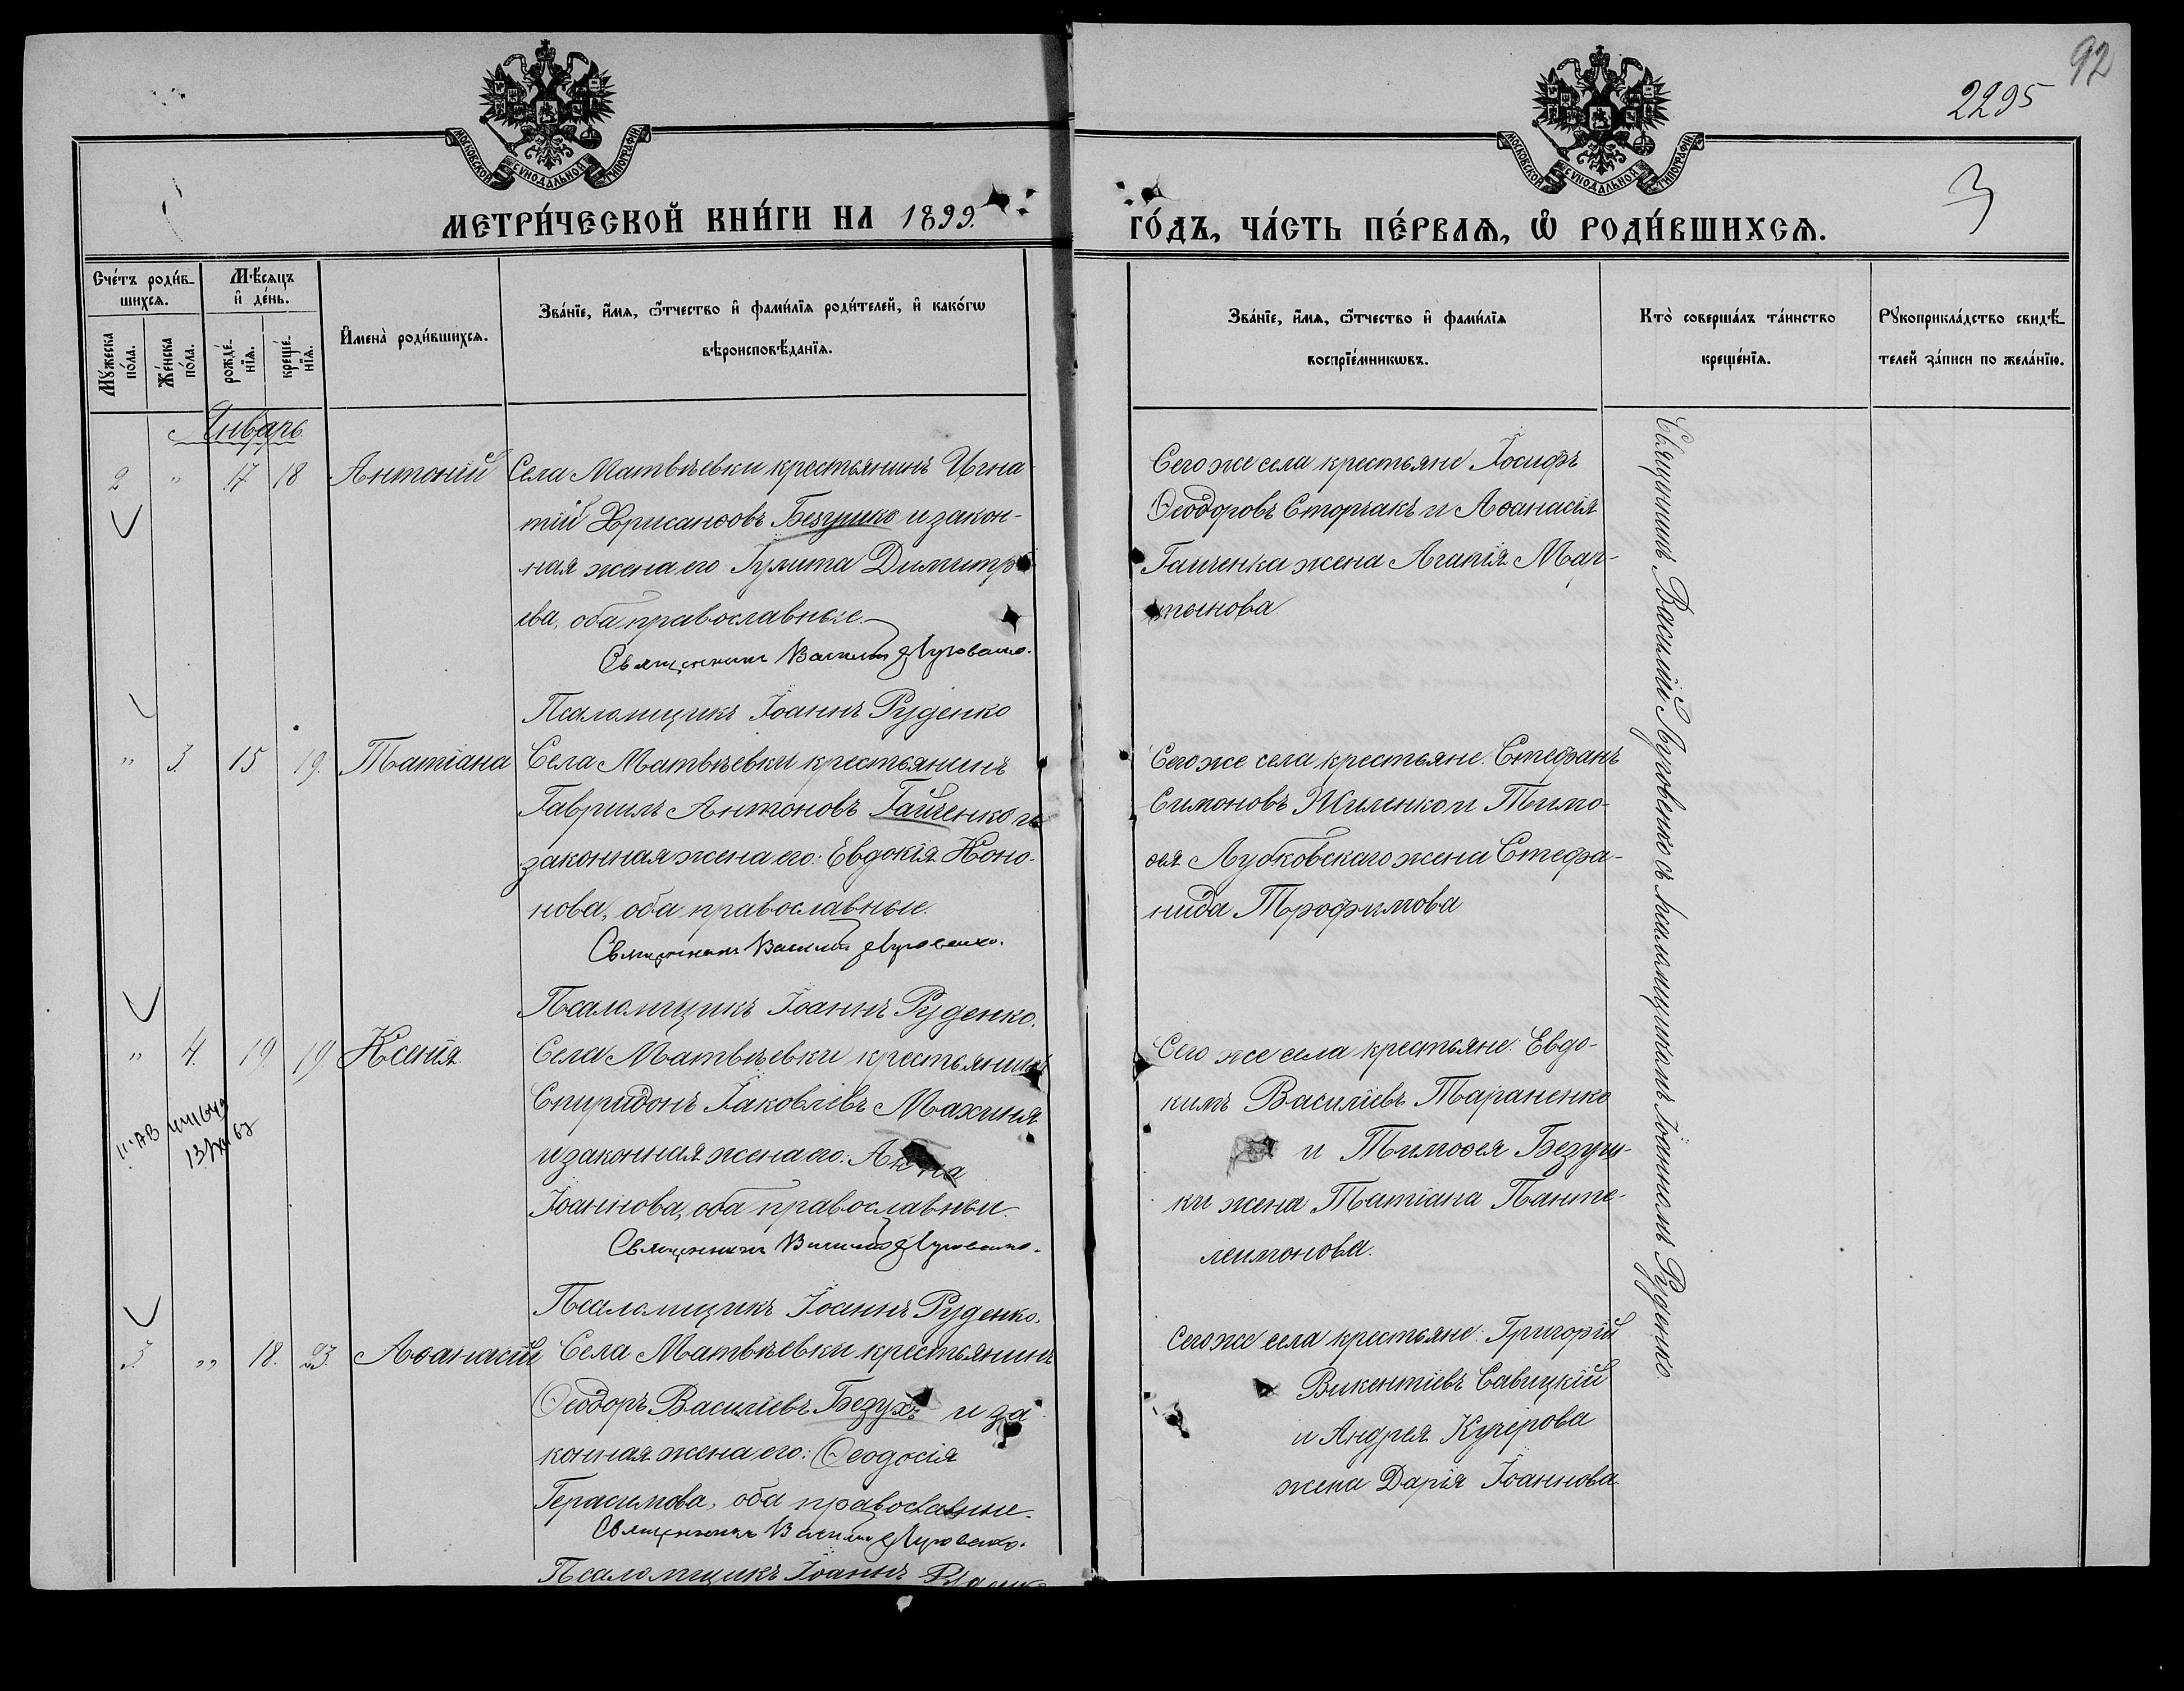 92
2295
3
МОСКОВСКОЙ СУНОДАЛЬНОЙ ТИПОГРАФІИ
МОСКОВСКОЙ СУНОДАЛЬНОЙ ТИПОГРАФІИ
МЕТРИ́ЧЕСКОЙ КНИ́ГИ НА 1899. ГО́ДЪ, ЧА́СТЬ ПЕ́РВАѦ, Ѡ҆ РОДИ́ВШИХСѦ.
Сче́тъ роди́в-
шихсѧ.
Мꙋ́жеска
по́ла.
Же́нска
по́ла.
Мѣ́сѧцъ
и҆ де́нь.
рожде́-
нїѧ.
креще́-
нїѧ.
И҆мена̀ роди́вшихсѧ.
Зва́нїе, и҆́мѧ, ѻ҆́тчество и҆ фами́лїѧ роди́телей, и҆ како́гѡ
вѣроисповѣ́данїѧ.
Зва́нїе, и҆́мѧ, ѻ҆́тчество и҆ фами́лїѧ
воспрїе́мникѡвъ.
Кто̀ соверша́лъ та́инство
креще́нїѧ.
Рꙋкоприкла́дство свидѣ́-
телей за́писи по жела́нїю.
Январь
2 " 17 18 Антоній Села Матвѣевки крестьянинъ Игна-
тій Хрисанѳовъ Безушко и закон-
ная жена его Іулита Димитр
ева, оба православные.
Священникъ Василій Луговенко.
Псаломщикъ Іоаннъ Руденко
Сего же села крестьяне Іосифъ
Ѳеодоровъ Сторчакъ и Аѳанасія
Гайченка жена Агапія Мар-
тынова
" 3. 15 19. Татіана Села Матвѣевки крестьянинъ
Гавріилъ Антоновъ Гайченко и
законная жена его: Евдокія Коно-
нова, оба православные.
Священникъ Василій Луговенко.
Псаломщикъ Іоаннъ Руденко.
Сего же села крестьяне: Стефанъ
Симоновъ Жиленко и Тимо-
ѳея Лубковскаго жена Стефа-
нида Трофимова
" 4. 19. 19 Ксенія Села Матвѣевки крестьянинъ
Спиридонъ Іаковлевъ Махиня
и законная жена его: Анна
Іоаннова, оба православные.
Священникъ Василій Луговенко.
Псаломщикъ Іоаннъ Руденко.
Сего же села крестьяне: Евдо-
кимъ Василіевъ Тараненко
и Тимоѳея Безуш-
ки жена Татіана Панте-
леимонова.
3. " 18. 23. Аѳанасій Села Матвѣевки крестьянинъ
Ѳеодоръ Василіевъ Безухъ и за
конная жена его: Ѳеодосія
Герасимова, оба православные.
Священникъ Василій Луговенко.
Псаломщикъ Іоаннъ
Сего же села крестьяне: Григорій
Викентіевъ Савицкій
и Андрея Кучерова
жена Дарія Іоаннова
Священникъ Василій Луговенко съ псаломщикомъ Іоанномъ Руденко